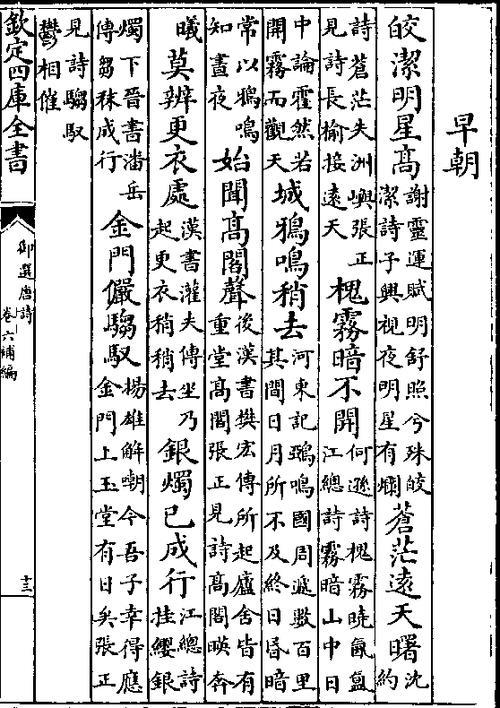 早朝
皎潔明星高謝靈運賦明舒照兮殊皎潔詩子興視夜明星有爛蒼茫遠天曙沈約
詩蒼茫失洲嶼張正見詩長榆接遠天槐霧暗不開何遜詩槐霧曉氤氳江總詩霧暗山中日
中論霍然若開霧而觀天城鴉鳴稍去河東記鵶鳴國周遞數百里其間日月所不及終日昏暗
常以鴉鳴知晝夜始聞高閣聲後漢書樊宏傳所起廬舍皆有重堂高閣張正見詩高閣暎奔
曦莫辨更衣處漢書灌夫傳坐乃起更衣稍稍去銀燭已成行江總詩挂纓銀
燭下晉書潘岳傳芻秣成行金門儼騶馭楊雄解嘲今吾子幸得應金門上玉堂有日矣張正
見詩騶馭鬱相催
欽定四庫全書
御選唐詩
卷六補編
十三